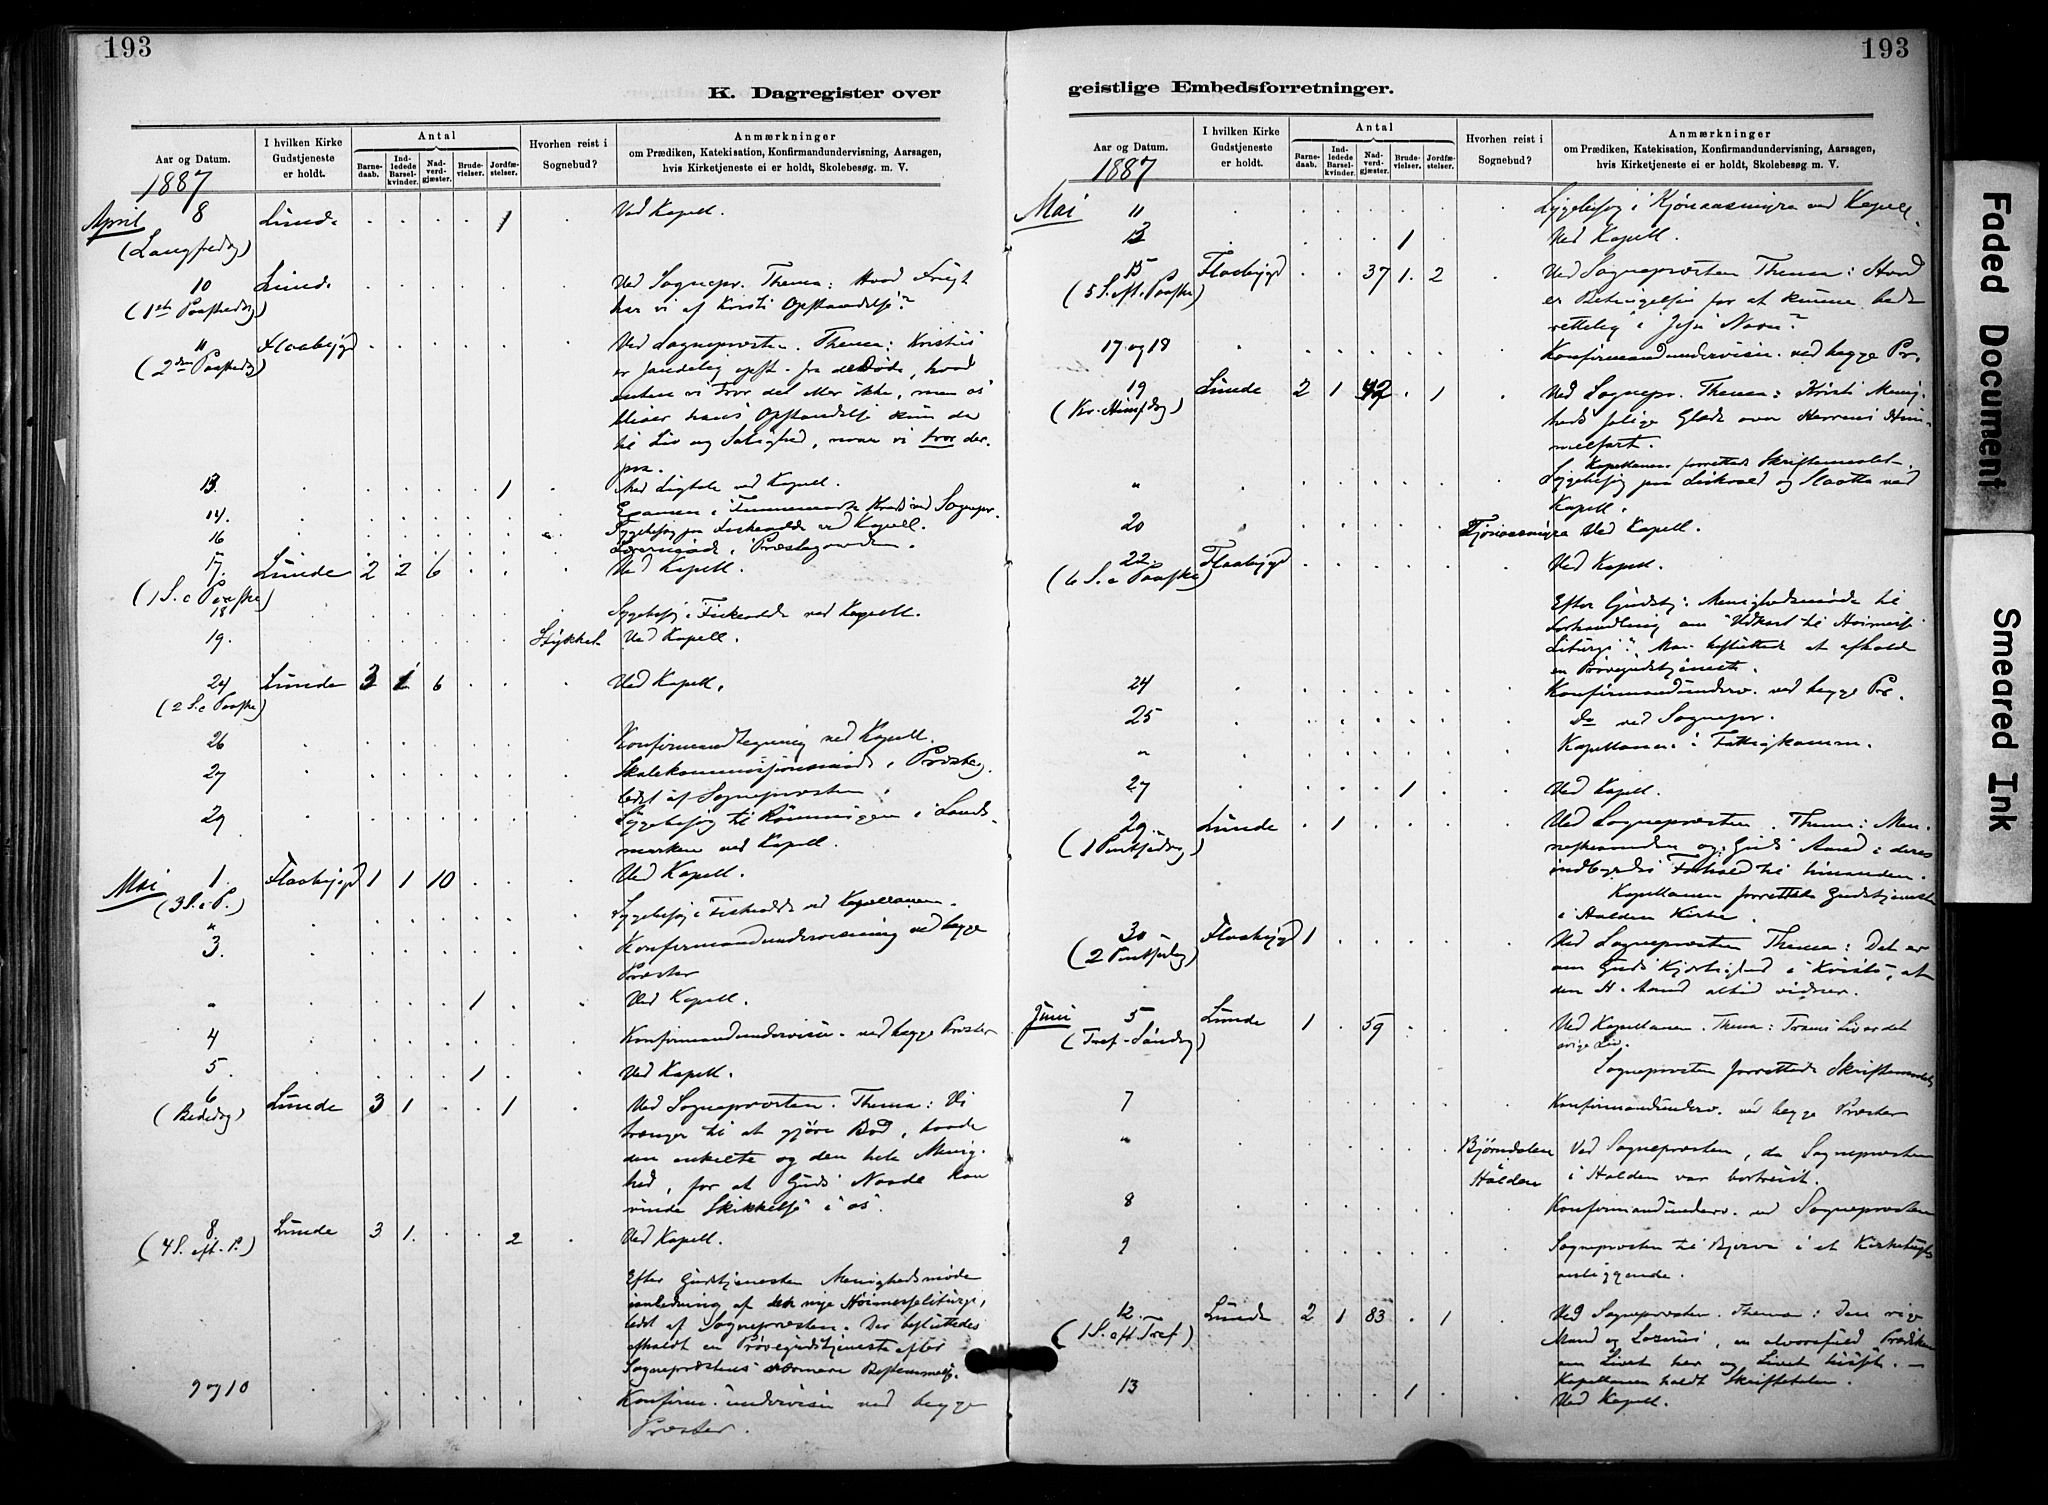 193
K. Dagregister over
Aar og Datum.
I hvilken Kirke Gudstjeneste er holdt.
Antal
Barne-daab.
Ind-ledede Barsel-kvinder.
Nad-verd-gjæster.
Brude-vielser.
Jordfæ-stelser.
Hvorhen reist i Sognebud?
Anmærkninger
om Prædiken, Katekisation, Konfirmandundervisning, Aarsagen,
hvis Kirketjeneste ei er holdt, Skolebesøg. m. V.
1887
April 8 Lunde . . . . 1 . Ved Kapell.
(Langfredag)
10 Lunde . . . . . . Ved Sognepr. Thema: Hvad Frugt
(1ste Paaskedag) har vi af Kristi Opstandelse?
11 Flaabygd . . . . . . Ved Sognepresten. Thema: Kristus
(2den Paaskedag) er sandelig opst. fra de Døde, hvad
enten vi tror det eller ikke, men os
bliver hans Opstandelse kun da
til Liv og Salighed, naar vi tror der-
paa.
13. . . . . . 1 . Med Ligtale ved Kapell.
14. Examen i ved Sognepr.
16 Sygebesøg paa ved Kapell.
i Præstegaarden.
17. Lunde 2 2 6 . . . Ved Kapell.
(1 S. e Paaske)
18 Sygebesøg i ved Kapell.
19. Stykket Ved Kapell.
24 Lunde 3 1 6 . . . Ved Kapell.
(2 S. e Paaske)
26 Konfirmandtegning ved Kapell.
27 Skolekommissionsmøde i Præsteg.
ledet af Sognepresten.
29 Sygebesøg til Rønningen i Lands-
marken ved Kapell.
Mai 1. Flaabygd 1 1 10 . . . Ved Kapell.
(3 S. e P.)
" Sygebesøg i ved Kapellanen.
3. Konfirmandundervisning ved begge
Præster
" . . . 1 . . Ved Kapell.
4 Konfirmandundervisn. ved begge Præster
5. . . . 1 . . Ved Kapell.
6 Lunde 3 1 . . 1 . Ved Sognepræsten. Thema: Vi
(Bededag) trænger til at gjøre Bod, baade
den enkelte og den hele Menig-
hed, for at Guds Naade kan
vinde Skikkelse i os.
8. Lunde 3 1. . . 2 . Ved Kapell.
(4 S. eft. P.)
Efter Gudstjenesten Menighedsmøde
i anledning af den nye Høimesseliturgi,
ledet af Sognepresten. Der besluttedes
afholdt en Prøvegudstjeneste efter
Sognepræstens nærmere Bestemmelse.
9 og 10 Konfirm.undervisn ved begge
Præster.
193
geistlige Embedsforretninger.
Aar og Datum.
I hvilken Kirke Gudstjeneste er holdt.
Antal
Barne-daab.
Ind-ledede Barsel-kvinder.
Nad-verd-gjæster.
Brude-vielser.
Jordfæ-stelser.
Hvorhen reist i Sognebud?
Anmærkninger
om Prædiken, Katekisation, Konfirmandundervisning, Aarsagen,
hvis Kirketjeneste ei er holdt, Skolebesøg m. V.
1887
Mai 11 Sygebesøg i Kjønaasmyra ved Kapell.
13 . . . 1 . . Ved Kapell.
15 Flaabygd . . 37 1. 2 . Ved Sognepræsten Thema: Hvad
(5 S. eft. Paaske) er Betingelsen for at kunne bede
rettelig i Jesu Navn?
17 og 18 Konfirmandundervisn. ved begge Pr.
19 Lunde 2 1 42 . 1 . Ved Sognepr. Thema: Kristi Menig-
(Kr. Himlfdag) heds salige Glæde over Herrens Him-
melfart.
Kapellanen forrettede Skriftemaalet.
" Sygebesøg paa og Slaatta ved
Kapell.
20 Kjønaasmyra Ved Kapell.
22 Flaabygd . . . . . . Ved Kapell.
(6 S. e Paaske)
Efter Gudstj: Menighedsmøde til
Forhandling om "Udkast til Høimesse
Liturgi". Man besluttede at afholde
en Prøvegudstjeneste.
24 Konfirmandunderv. ved begge Pr.
25 do ved Sognepr.
" Kapellanen i Fattigkomm.
27 . . . 1 . . Ved Kapell.
29 Lunde . 1 . . . . Ved Sognepræsten. Thema: Men-
(1 Pintsedag) neskeaanden og Guds Aand i deres
indbyrdes Forhold til hinanden.
Kapellanen forrettede Gudstjeneste
i Holden Kirke.
30 Flaabygd 1 . . . . . Ved Sognepræsten Thema: Det er
(2 Pintsedag) om Guds Kjærlighed i Kristo, at
den H. Aand altid vidner.
Juni 5 Lunde 1 . 59 . . . Ved Kapellanen. Thema: Troens Liv er det
(Tref-Søndag) evige Liv.
Sognepræsten forrettede Skriftemaalet
7 Konfirmandunderv. ved begge Præster
" Bjørndalen Ved Sognepræsten, da Sognepræsten
Holden i Holden var bortreist.
8 Konfirmandunderv. ved Sognepræsten
9 Sognepræsten til i et
anliggende.
12. Lunde 2 1 83 . 1 . Ved Sognepræsten. Thema: Den rige
(1 S. eft Tref) Mand og Lazarus, en alvorsfuld Prædiken
om Livet her og Livet hisset. —
Kapellanen holdt Skriftetalen.
13 . . . 1 . . Ved Kapell.
Faded Document
Smeared Ink